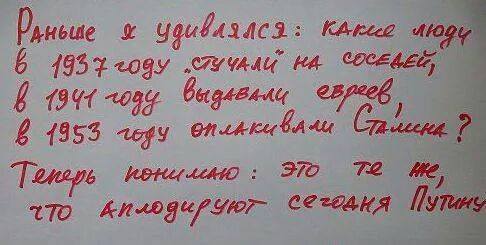 Раньше я удивлялся: какие люди
в 1937 году „стучали" на соседей,
в 1941 году выдавали евреев,
в 1953 году оплакивали Сталина?
Теперь понимаю: это те же,
что аплодируют сегодня Путину